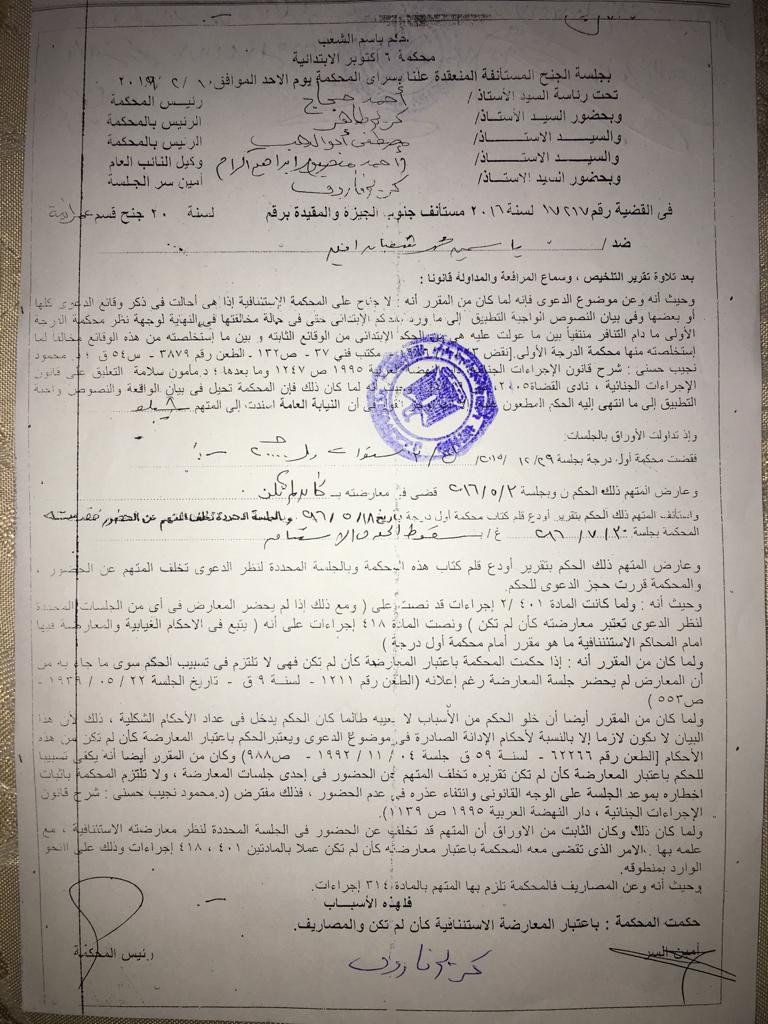 حكم باسم الشعب
محكمة ٦ أكتوبر الابتدائية
بجلسة الجنح المستأنفة المنعقدة علنا بسراى المحكمة يوم الاحد الموافق ١٠ / ٢ / ٢٠١٩
تحت رئاسة السيد الأستاذ / أحمد حجاج رئيس المحكمة
وبحضور السيد الأستاذ/ الرئيس بالمحكمة
والسيد الاستاذ/ مصطفى أبو الدهب الرئيس بالمحكمة
والسيد الاستاذ/ وكيل النائب العام
وبحضور السيد الاستاذ/ أمين سر الجلسة
فى القضية رقم ١٧٢١٧ لسنة ٢٠١٦ مستأنف جنوب الجيزة والمقيدة برقم لسنة ٢٠ جنح قسم عمرانية
ضد/ ياسمين
بعد تلاوة تقرير التلخيص ، وسماع المرافعة والمداوله قانونا :
وحيث أنه وعن موضوع الدعوى فإنه لما كان من المقرر أنه : لا جناح على المحكمة الإستئنافية إذا هى أحالت فى ذكر وقائع الدعوى كلها
أو بعضها وفى بيان النصوص الواجبة التطبيق إلى ما ورد بالحكم الإبتدائى حتى فى حالة مخالفتها فى النهاية لوجهة نظر محكمة الدرجة
الأولى ما دام التنافر منتفياً بين ما عولت عليه من الحكم الابتدائى من الوقائع الثابته و بين ما إستخلصته من هذه الوقائع مخالفا لما
إستخلصته منها محكمة الدرجة الأولى.[نقض مكتب فنى ٣٧ - ص١٣٢- الطعن رقم ٣٨٧٩ - س٥٤ ق ؛ د. محمود
نجيب حسنى : شرح قانون الإجراءات الجنائية دار النهضة العربية ١٩٩٥ ص ١٢٤٧ وما بعدها ؛ د.مأمون سلامة التعليق على قانون
الإجراءات الجنائية ، نادى القضاة٢٠٠٥، لما كان ذلك فإن المحكمة تحيل فى بيان الواقعة والنصوص واجبة
التطبيق إلى ما انتهى إليه الحكم المطعون فى أن النيابة العامة اسندت إلى المتهم
وإذ تداولت الأوراق بالجلسات:
فقضت محكمة أول درجة بجلسة ٢٩/ ١٢ /٢٠١٥
وعارض المتهم ذلك الحكم وبجلسة ٢/ ٥/ ٢٠١٦ قضى فى معارضته بـ كأن لم تكن
واستأنف المتهم ذلك الحكم بتقرير أودع قلم كتاب محكمة أول درجة بتاريخ ١٨/ ٥ / وبالجلسة المحددة تخلف المتهم عن الحضور فقضت
المحكمة بجلسة ٣٠/ ٧ / ٢٠١٦ غ/ سقوط الحق فى الاستئناف
وعارض المتهم ذلك الحكم بتقرير أودع قلم كتاب هذه المحكمة وبالجلسة المحددة لنظر الدعوى تخلف المتهم عن الحضور ،
والمحكمة قررت حجز الدعوى للحكم.
وحيث أنه : ولما كانت المادة ٤٠١ /٢ إجراءات قد نصت على ( ومع ذلك إذا لم يحضر المعارض فى أى من الجلسات المحددة
لنظر الدعوى تعتبر معارضته كأن لم تكن ) ونصت المادة ٤١٨ إجراءات على أنه ( يتبع فى الاحكام الغيابية والمعارضة فيها
امام المحاكم الاستئنافية ما هو مقرر أمام محكمة أول درجة )
ولما كان من المقرر أنه : إذا حكمت المحكمة باعتبار المعارضة كأن لم تكن فهى لا تلتزم فى تسبيب الحكم سوى ما جاء به من
أن المعارض لم يحضر جلسة المعارضة رغم إعلانه (الطعن رقم ١٢١١ - لسنة ٩ ق - تاريخ الجلسة ٢٢ / ٠٥ / ١٩٣٩ -
ص٥٥٣ )
ولما كان من المقرر أيضا أن خلو الحكم من الأسباب لا يعيبه طالما كان الحكم يدخل فى عداد الأحكام الشكلية ، ذلك لأن هذا
البيان لا يكون لازما إلا بالنسبة لأحكام الإدانة الصادرة فى موضوع الدعوى ويعتبر الحكم باعتبار المعارضة كأن لم تكن من هذه
الأحكام [الطعن رقم ٦٢٢٦٦ - لسنة ٥٩ ق جلسة ٠٤ / ١١ / ١٩٩٢ - ص٩٨٨) وكان من المقرر أيضا أنه يكفى تسبيبا
للحكم باعتبار المعارضة كأن لم تكن تقريره تخلف المتهم عن الحضور فى إحدى جلسات المعارضة ، ولا تلتزم المحكمة باثبات
اخطاره بموعد الجلسة على الوجه القانونى وانتفاء عذره فى عدم الحضور ، فذلك مفترض (د.محمود نجيب حسنى : شرح قانون
الإجراءات الجنائية ، دار النهضة العربية ١٩٩٥ ص ١١٣٩).
ولما كان ذلك وكان الثابت من الاوراق أن المتهم قد تخلف عن الحضور فى الجلسة المحددة لنظر معارضته الاستئنافية ، مع
علمه بها . الامر الذى تقضى معه المحكمة باعتبار معارضته كأن لم تكن عملا بالمادتين ٤٠١ ، ٤١٨ إجراءات وذلك على النحو
الوارد بمنطوقه.
وحيث أنه وعن المصاريف فالمحكمة تلزم بها المتهم بالمادة ٣١٤ إجراءات.
فلهذه الأسباب
حكمت المحكمة : باعتبار المعارضة الاستئنافية كأن لم تكن والمصاريف.
أمين السر رئيس المحكمة